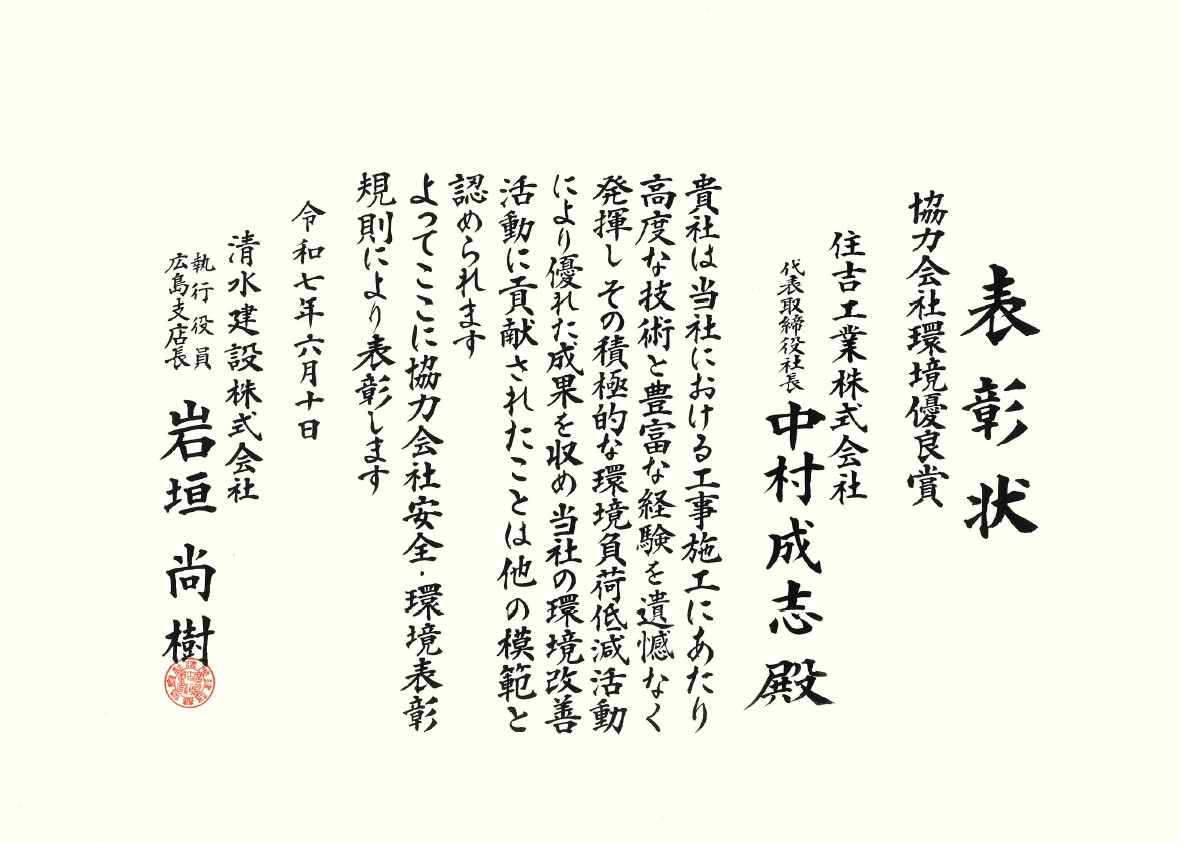 表彰状
協力会社環境優良賞
住吉工業株式会社
代表取締役社長
中村成志殿
貴社は当社における工事施工にあたり
高度な技術と豊富な経験を遺憾なく
発揮しその積極的な環境負荷低減活動
により優れた成果を収め当社の環境改善
活動に貢献されたことは他の模範と
認められます
よってここに協力会社安全・環境表彰
規則により表彰します
令和七年六月十日
清水建設株式会社
執行役員
広島支店長
岩垣尚樹